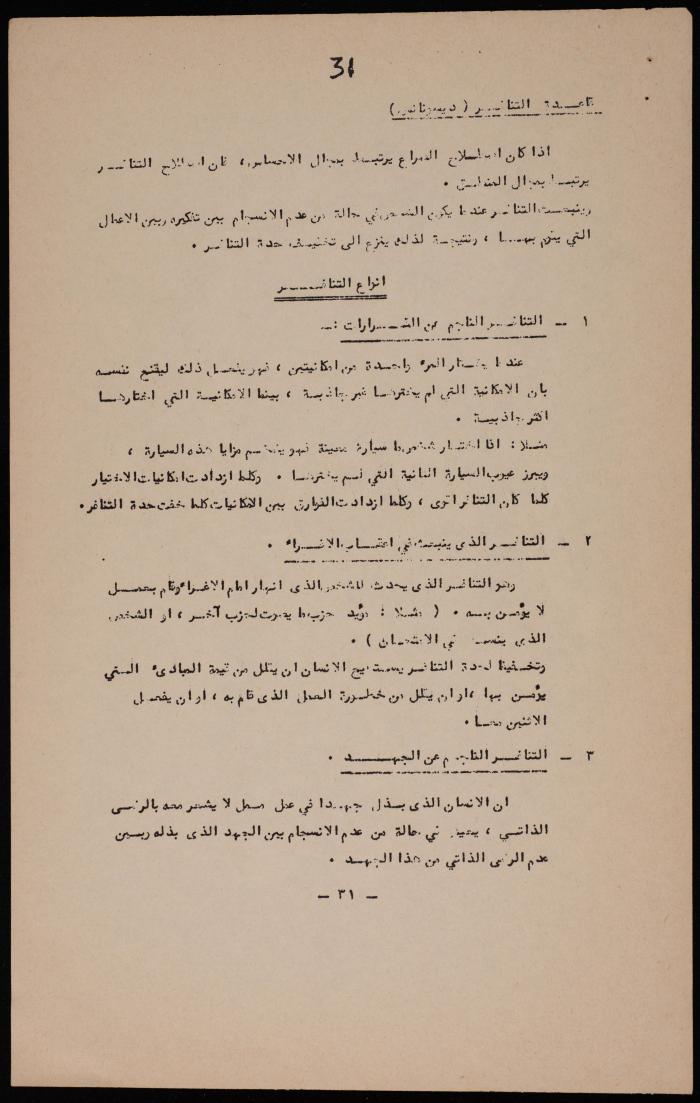 31
قاعدة التنافر ( ديسونانس )
اذا كان اصطلاح الصراع يرتبط بمجال الاحساس ، فان اصطلاح التنافر
يرتبط بمجال المنطق .
وينبعث التنافر عندما يكون الشخص في حالة من عدم الانسجام بين تفكيره وبين الاعمال
التي يقوم بهما ، ونتيجة لذلك ينزع الى تخفيف حدة التنافر .
انواع التنافر
١ – التنافر الناجم عن القرارات :–
عندما يختار المرء واحدة من امكانيتين ، فهو يفعل ذلك ليقنع نفسه
بان الامكانية التي لم يخترها غير جاذبة ، بينما الامكانية التي اختارها
اكثر جاذبية .
مثلا : اذا اختار شخص ما سيارة معينة فهو يضخم مزايا هذه السيارة ،
ويبرز عيوب السيارة الثانية التي لم يخترها . وكلما ازدادت امكانيات الاختيار
كلما كان التنافر اقوى ، وكلما ازدادت الفوارق بين الامكانيات كلما خفت حدة التنافر .
٢ – التنافر الذى ينبعث في اعقاب الاغراء .
وهو التنافر الذى يحدث للشخص الذى انهار امام الاغراء وقام بعمل
لا يؤمن به . ( مثلا : مؤيد حزب ما يصوت لحزب آخر ، او الشخص
الذى ينسخ في الامتحان ) .
وتخفيفا لحدة التنافر يستطيع الانسان ان يقلل من قيمة المبادىء التي
يؤمن بها ، او ان يقلل من خطورة العمل الذى قام به ، او ان يفعل
الاثنين معا .
٣ – التنافر الناجم عن الجهد .
ان الانسان الذى بذل جهدا في عمل لا يشعر معه بالرضى
الذاتي ، يعيش في حالة من عدم الانسجام بين الجهد الذى بذله وبين
عدم الرضى الذاتي من هذا الجهد .
– ٣١ –